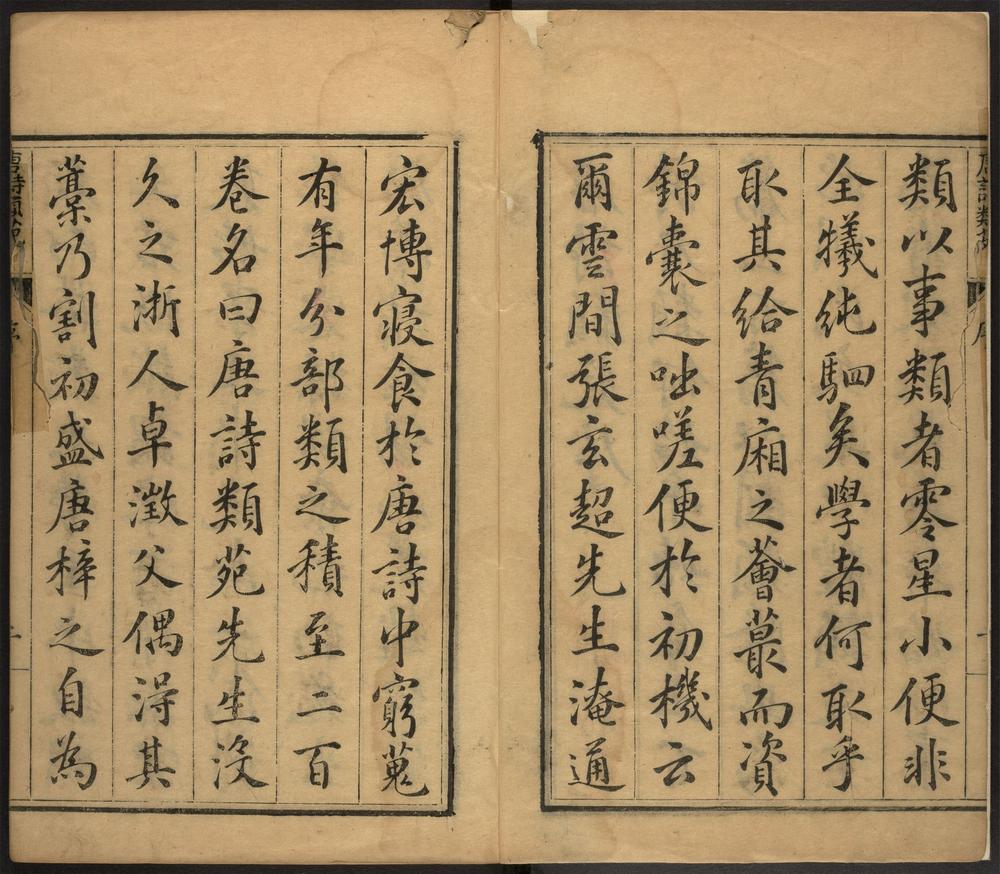 類以事類者零星小便非
全犧純駟矣學者何取乎
取其給青廂之薈蕞而資
錦囊之咄嗟便於初機云
爾雲間張玄超先生淹通
宏博寢食於唐詩中窮蒐
有年分部類之積至二百
卷名曰唐詩類苑先生沒
久之浙人卓澂父偶淂其
藁乃割初盛唐梓之自為